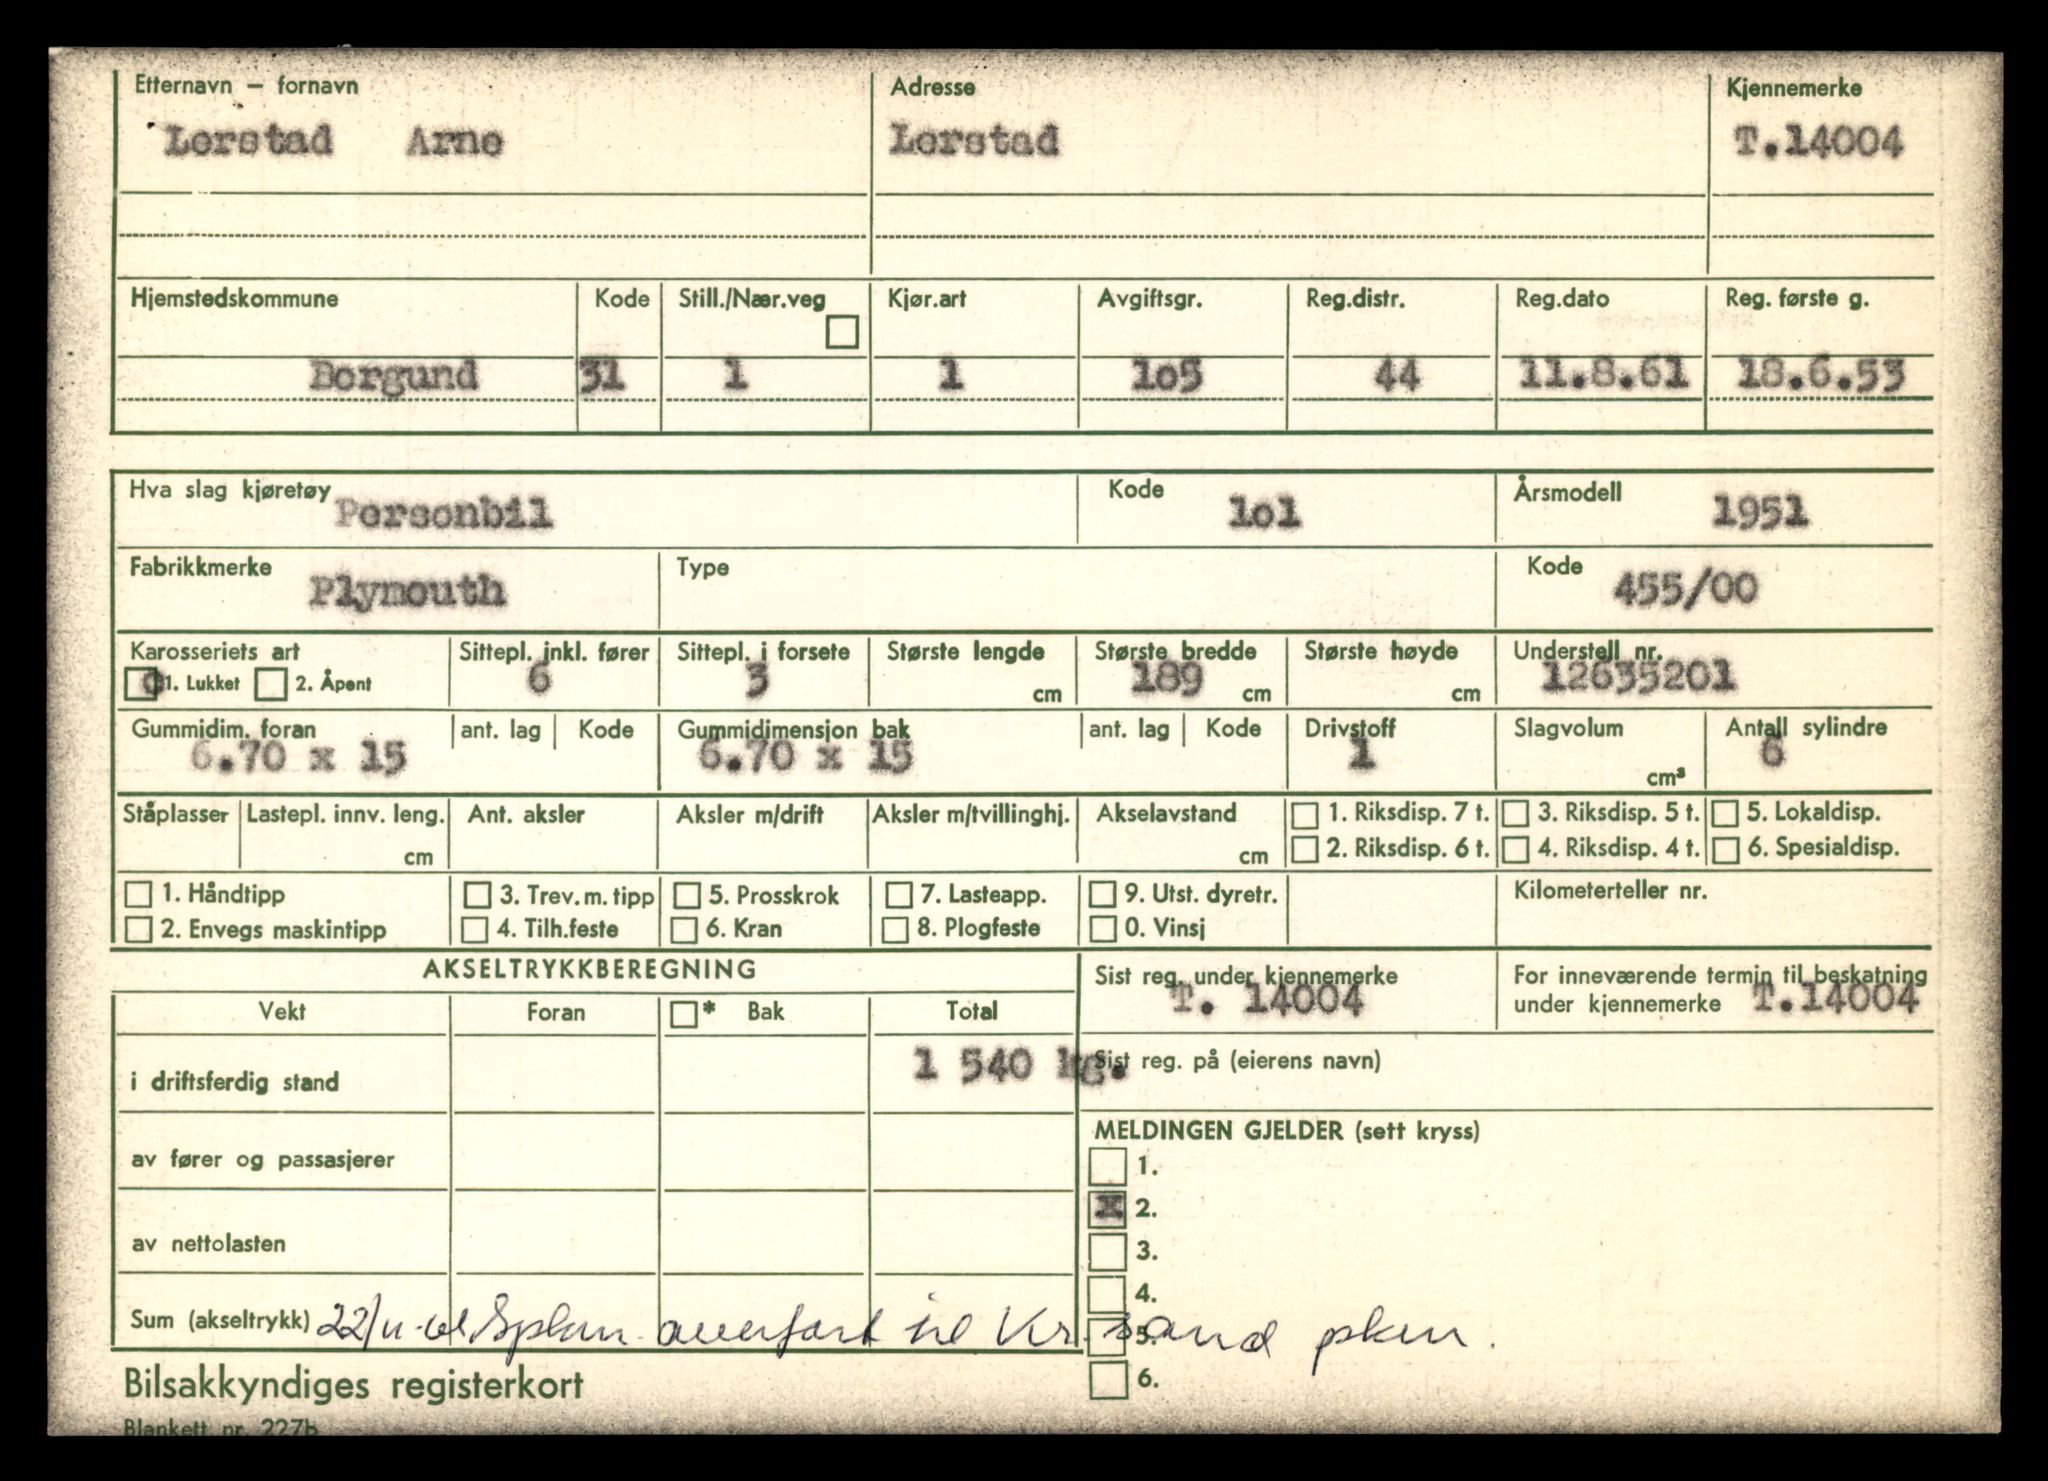 Etternavn – fornavn Adresse Kjennemerke
Lerstad Arne Lerstad T.14004
Hjemstedskommune Kode Still./Nær.veg Kjør.art Avgiftsgr. Reg.distr. Reg.dato Reg. første g.
Borgund 31 1 1 1o5 44 11.8.61 18.6.53
Hva slag kjøretøy Personbil Kode 1o1 Årsmodell 1951
Fabrikkmerke Plymouth Type Kode 455/00
Karosseriets art Sittepl. inkl. fører Sittepl. i forsete Største lengde Største bredde Største høyde Understell nr.
1. Lukket 2. Åpent 6 3 cm 189 cm cm 12635201
Gummidim. foran ant. lag Kode Gummidimensjon bak ant. lag Kode Drivstoff Slagvolum Antall sylindre
6.70 x 15 6.70 x 15 1 cm³ 6
Ståplasser Lastepl. innv. leng. Ant. aksler Aksler m/drift Aksler m/tvillinghj. Akselavstand 1. Riksdisp. 7 t. 3. Riksdisp. 5 t. 5. Lokaldisp.
cm cm 2. Riksdisp. 6 t. 4. Riksdisp. 4 t. 6. Spesialdisp.
1. Håndtipp 3. Trev. m. tipp 5. Prosskrok 7. Lasteapp. 9. Utst. dyretr. Kilometerteller nr.
2. Envegs maskintipp 4. Tilh.feste 6. Kran 8. Plogfeste 0. Vinsj
AKSELTRYKKBEREGNING
Vekt Foran * Bak Total
i driftsferdig stand 1 540 kg.
av fører og passasjerer
av nettolasten
Sum (akseltrykk)
Sist reg. under kjennemerke
T. 14004
For inneværende termin til beskatning
under kjennemerke T.14004
Sist reg. på (eierens navn)
MELDINGEN GJELDER (sett kryss)
1.
x 2.
3.
4.
5.
6.
overført til Kr.sand pkm.
Bilsakkyndiges registerkort
Blankett nr. 227b